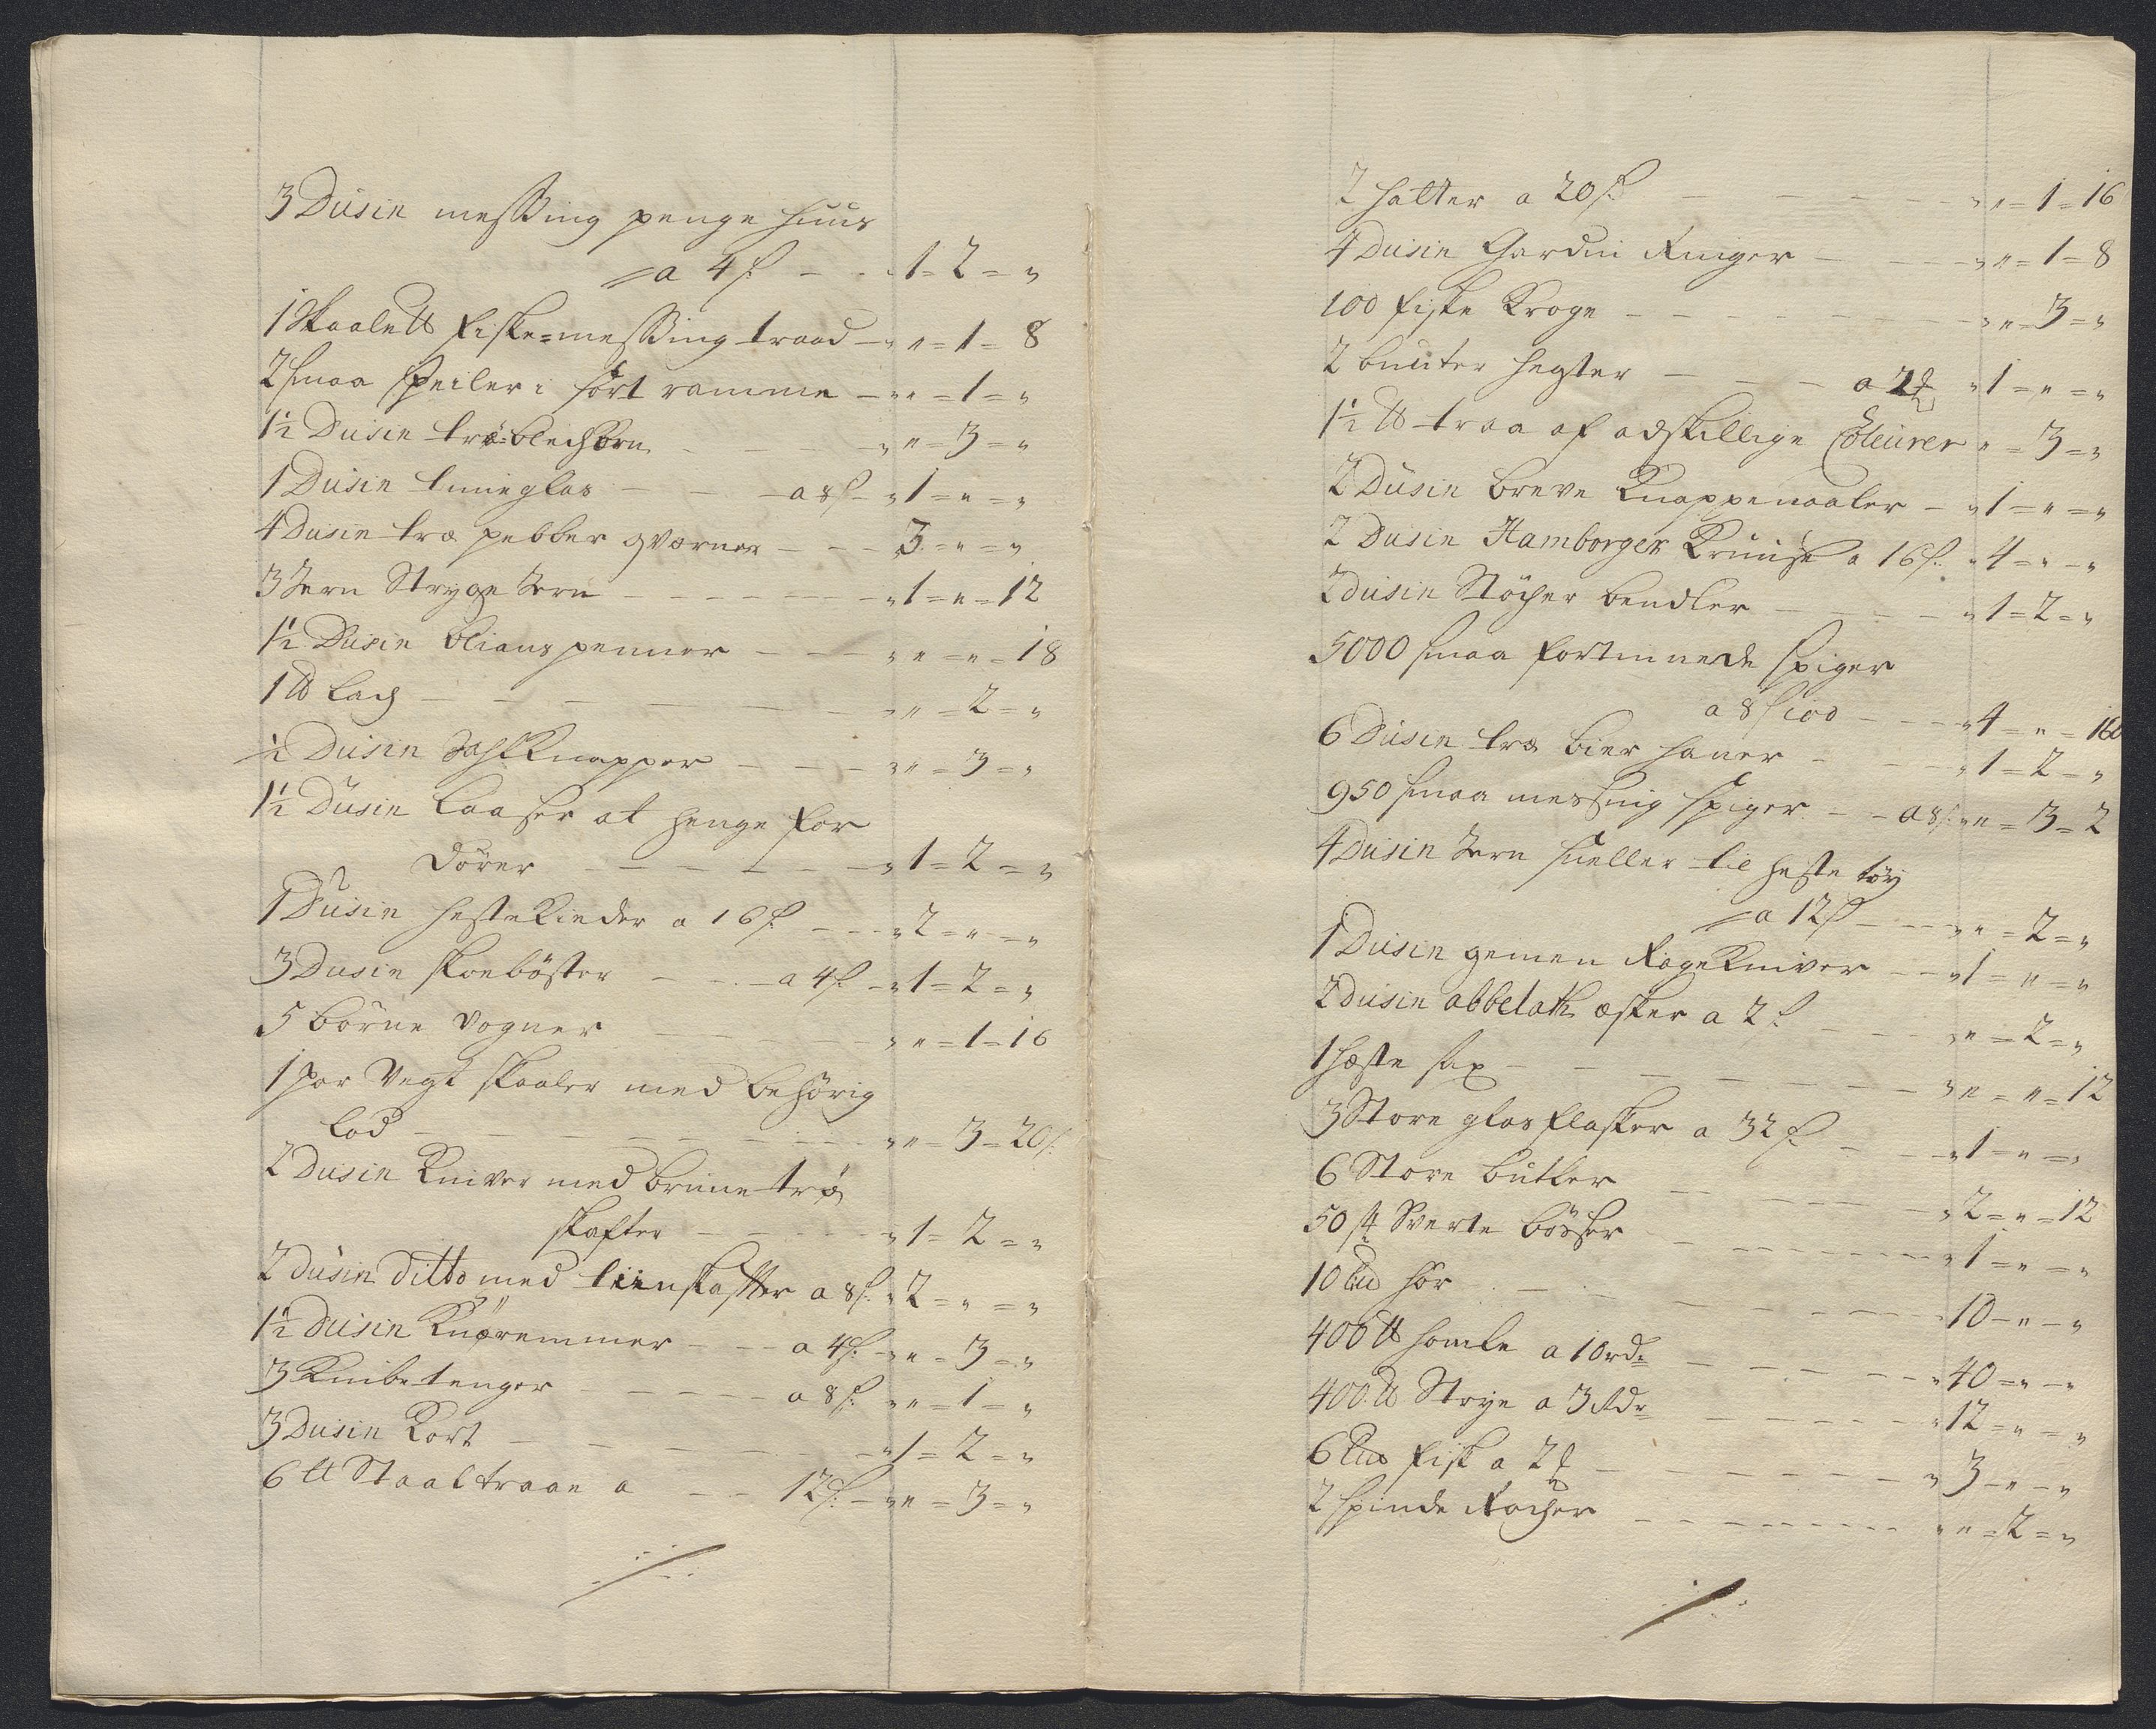 3 Dusin messing penge Huus
a 4ſ: - - 1=2=„
1 Skaalett fiske=messing traad - „ „=1=8
2 smaa Speiler i sort ramme - „ „=1=„
1½ Dusin træ blechhorn - - - „ „=3=„
1 Dusin timeglas - - - a 8ſ - „ 1=„=„
4 Dusin træ pebber qværner - - - 3=„=„
3 Jern Stryge Jern - - - - - „ 1=„=12
1½ Dusin bliants penner - - - „ „=„=18
1 ℔ Lack - - - - - - „ „=2=„
½ Dusin Knapper - - - „ „=3=„
1½ Dusin Laaser at henge for
dörer - - - - - - „ 1=2=„
1 Dusin heste Rieder a 16ſ - - - „ 2=„=„
3 Dusin skoebörster - - - a 4ſ - „ 1=2=„
5 börne vogner - - - - „ „=1=16
1 par Vegt skaaler med behörig
Lod - - - - - - - „ „=3=20ſ:
2 Dusin Kniver med brune træ
skafter - - - - - „ 1=2=„
2 dusin ditto med biinskaffter a 8ſ: „ 2=„=„
1½ dusin Knæremmer - - - a 4ſ: - „ „=3=„
3 Knibetenger - - - - a 8ſ: „ „=1=„
3 Dusin Kort - - - - - - „ 1=2=„
6 ℔ Staaltraae a - - 12ſ: - „ „=3=„
2 hatter a 20ſ - - - - - „ „=1=16
4 Dusin Gardin Ringer - - - „ „=1=8
100 fiske Kroge - - - - - - „ „=3=„
2 bunter hegter - - - a 2 „ 1=„=„
1½ ℔ traa af adskillige Coleurer „=3=„
2 Dusin breve Knappenaaler - „ 1=„=„
2 Dusin Hamborger Kruuse a 16ſ: „ 4=„=„
2 dusin Stöcher bendler - - - „ 1=2=„
5000 smaa fortinnede spiger
a 8ſ 100 - - - „ 4=„=16
6 Dusin træ bier haner - - - „ 1=2=„
950 smaa messing spiger - - a 8ſ: „ „=3=2
4 Dusin Jern sneller til heste töy
a 12ſ - - - „ „=2=„
1 Dusin gemen RageKniver - - „ 1=„=„
2 dusin abbelath æsker a 2ſ - - - „ „=2=„
1 hæste sax - - - - - - - „ „=„=12
3 Store glas flasker a 32ſ - - - „ 1=„=„
6 Store butler - - - - - „ 2=„=12
50 st Sverte bösser - - - - - „ 1=„=„
10 Lid hör - - - - - - - 10=„=„
400 ℔ homle a 10rdr - - - - „ 40=„=„
400 ℔ Strye a 3 Rdr - - - - „ 12=„=„
6 Lid fisk a 2 - - - - - - „ 3=„=„
2 spinde Rocher - - - - - - „ „=2=„